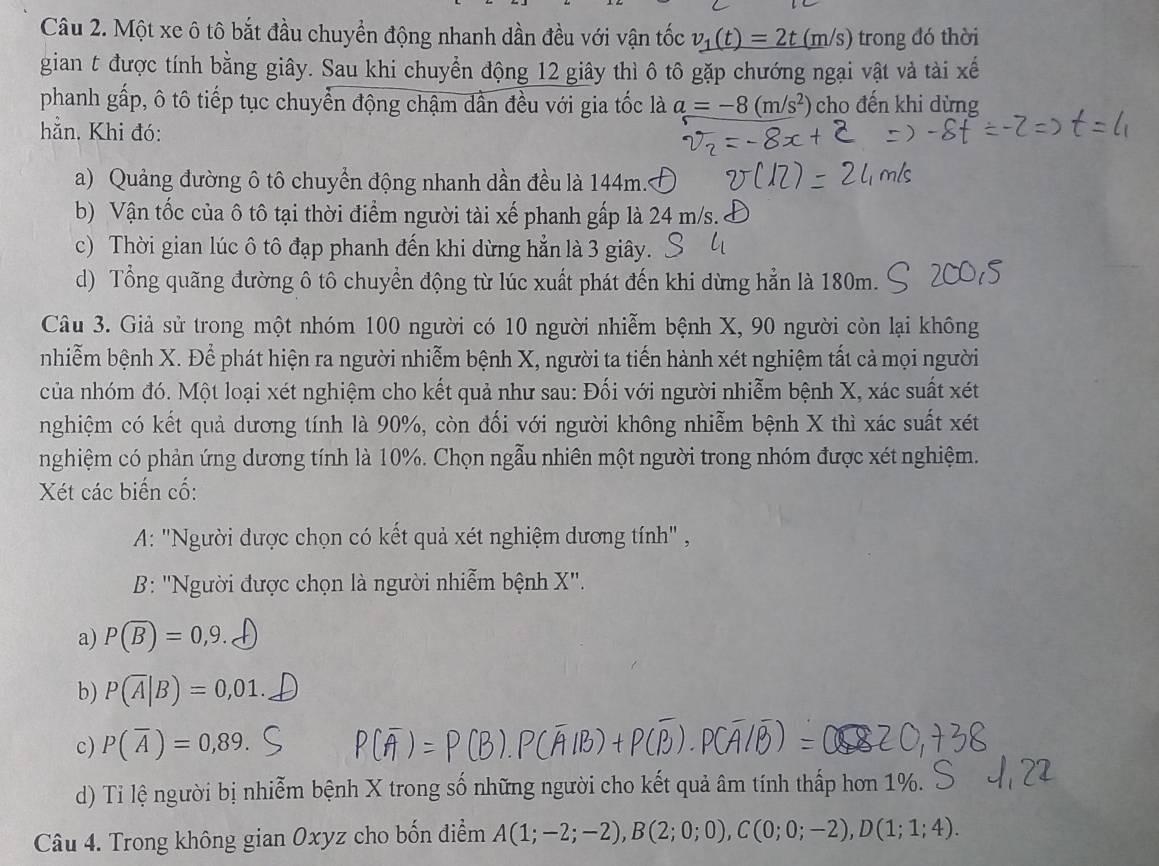 Câu 2. Một xe ô tô bắt đầu chuyển động nhanh dần đều với vận tốc v₁(t) = 2t (m/s) trong đó thời
gian t được tính bằng giây. Sau khi chuyển động 12 giây thì ô tô gặp chướng ngại vật và tài xế
phanh gấp, ô tô tiếp tục chuyển động chậm dần đều với gia tốc là a = −8 (m/s²) cho đến khi dừng
hẳn. Khi đó:
v₂ = -8x + 2 => -8t = -2 => t = 4
a) Quảng đường ô tô chuyển động nhanh dần đều là 144m. Đ v(12) = 24 m/s
b) Vận tốc của ô tô tại thời điểm người tài xế phanh gấp là 24 m/s. Đ
c) Thời gian lúc ô tô đạp phanh đến khi dừng hẳn là 3 giây. S 4
d) Tổng quãng đường ô tô chuyển động từ lúc xuất phát đến khi dừng hẳn là 180m. S 200,5
Câu 3. Giả sử trong một nhóm 100 người có 10 người nhiễm bệnh X, 90 người còn lại không
nhiễm bệnh X. Để phát hiện ra người nhiễm bệnh X, người ta tiến hành xét nghiệm tất cả mọi người
của nhóm đó. Một loại xét nghiệm cho kết quả như sau: Đối với người nhiễm bệnh X, xác suất xét
nghiệm có kết quả dương tính là 90%, còn đối với người không nhiễm bệnh X thì xác suất xét
nghiệm có phản ứng dương tính là 10%. Chọn ngẫu nhiên một người trong nhóm được xét nghiệm.
Xét các biến cố:
A: "Người được chọn có kết quả xét nghiệm dương tính" ,
B: "Người được chọn là người nhiễm bệnh X".
a) P(B̅) = 0,9. Đ
b) P(A̅|B) = 0,01. Đ
c) P(A̅) = 0,89. S P(A̅) = P(B).P(A̅/B) + P(B̅).P(A̅/B̅) = 0,738
d) Tỉ lệ người bị nhiễm bệnh X trong số những người cho kết quả âm tính thấp hơn 1%. S 1,22
Câu 4. Trong không gian Oxyz cho bốn điểm A(1;−2;−2), B(2;0;0), C(0;0;−2), D(1;1;4).